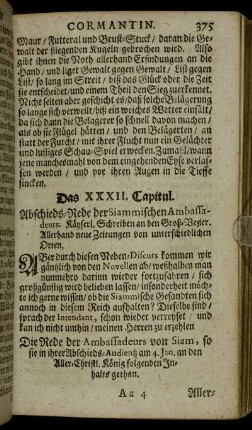 CORMANTIN. 375
Maur / Futteral und Brust-Stuck / daran die Ge-
walt der fliegenden Kugeln gebrochen wird. Also
gibt ihnen die Noth allerhand Erfindungen an die
Hand / und liget Gewalt gegen Gewalt / List gegen
List / so lang im Streit / biß das Glück oder die Zeit
sie entscheidet / und einem Theil den Sieg zuerkennet.
Nicht selten aber geschiht es / daß solche Belägerung
so lange sich verweilt / biß ein weiches Wetter einfält /
da sich dann die Belägerer so schnell davon machen /
als ob sie Flügel hätten / und den Belägerten / an
statt der Furcht / mit ihrer Flucht nur ein Gelächter
und lustiges Schau-Spiel erwecken. Zumahl / wann
jene manchesmahl von dem eingehenden Eyse verlas-
sen werden / und vor ihren Augen in die Tieffe
sincken.
Das XXXII. Capitul.
Abschieds-Rede der Siammischen Ambassa-
deurs. Käyserl. Schreiben an den Groß-Vezier.
Allerhand neue Zeitungen von unterschiedlichen
Orten.
ABer durch diesen Neben-Discurs kommen wir
gäntzlich von den Novellen ab / weßhalben man
nunmehro darinn wieder fortzufahren / sich
großgünstig wird belieben lassen / insonderheit möch-
te ich gerne wissen / ob die Siammische Gesandten sich
annoch in diesem Reich aufhalten? Dieselbe sind /
sprach der Intendant, schon wieder verreyset / und
kan ich nicht umhin / meinen Herren zu erzehlen
Die Rede der Ambassadeurs von Siam, so
sie in ihrer Abschieds-Audientz am 4. Jan. an den
Aller-Christl. König folgenden In-
halts gethan.
Aa 4 Aller-